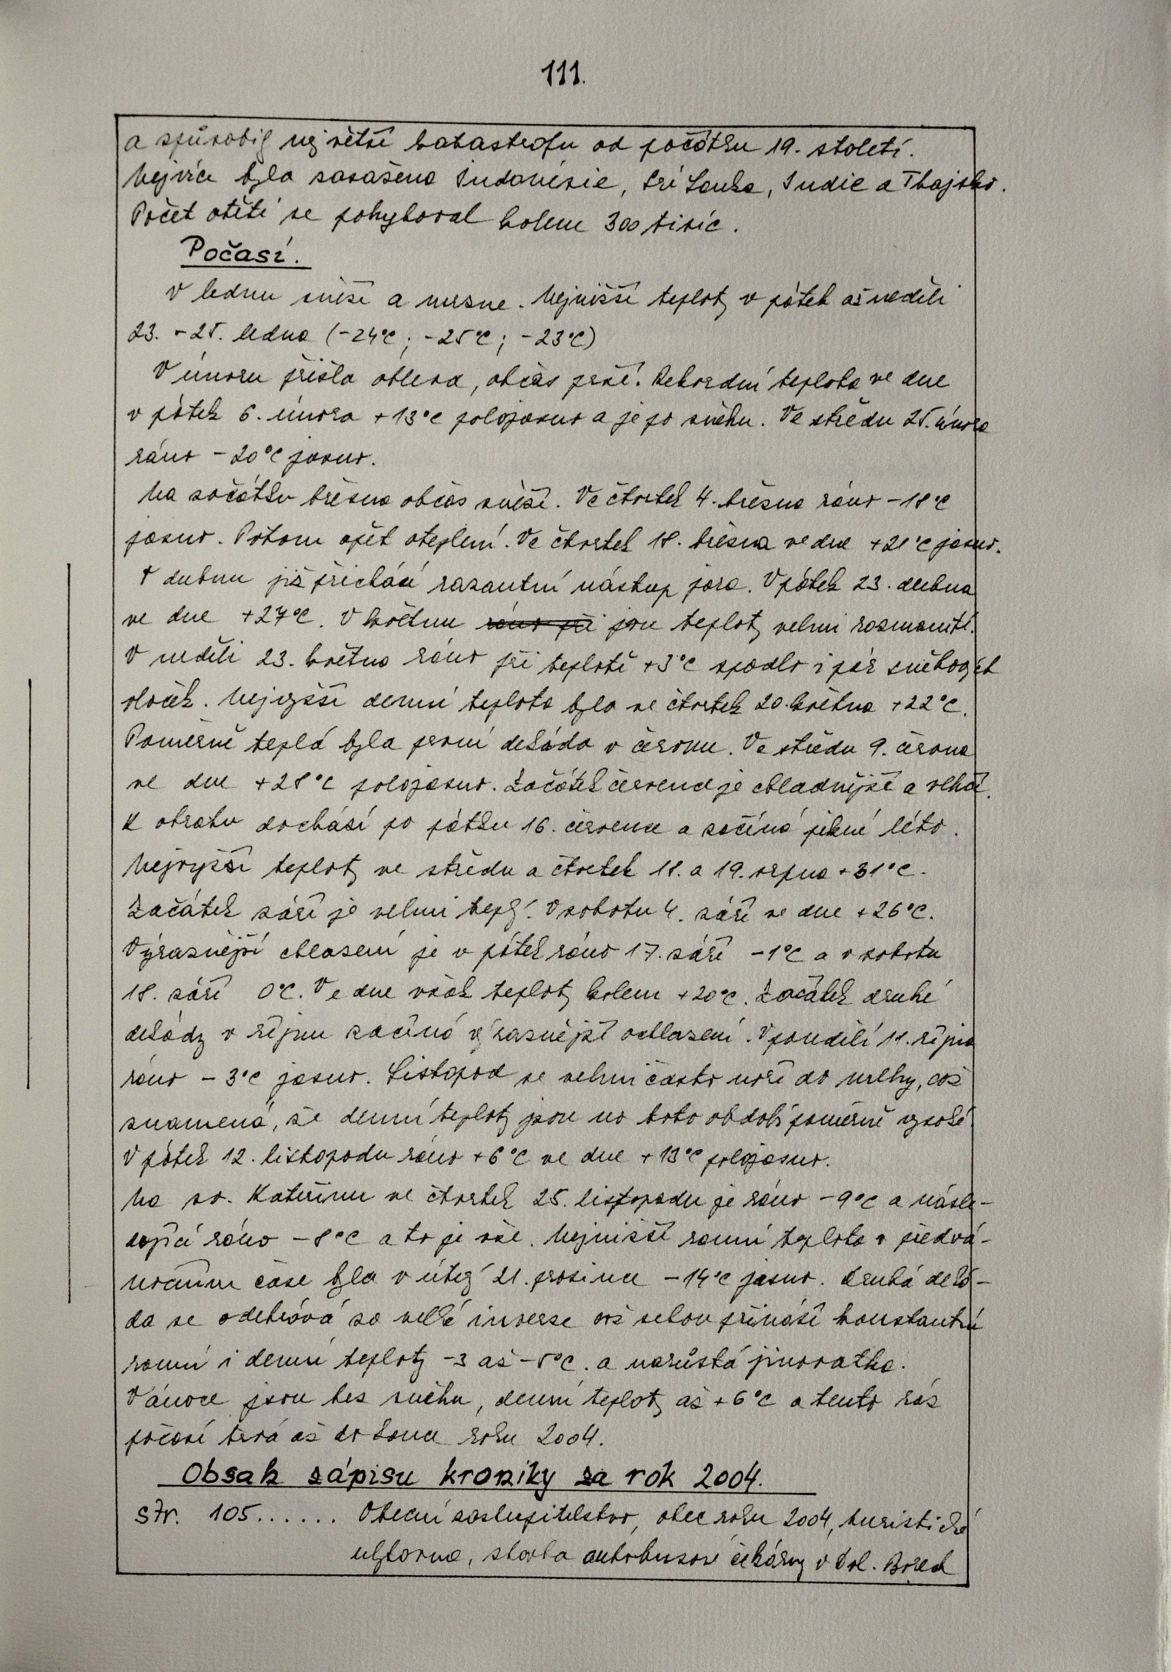 111.
a způsobil největší katastrofu od počátku 19. století.
Nejvíce byla zasažena Indonésie, Srí Lanka, Indie a Thajsko.
Počet obětí se pohyboval kolem 300 tisíc.
Počasí.
V lednu sněží a mrzne. Nejnižší teploty v pátek až neděli
23. - 25. ledna (-24°C; -25°C; -23°C)
V únoru přišla obleva, občas prší. Rekordní teplota ve dne
v pátek 6. února +13°C polojasno a je po sněhu. Ve středu 25. února
ráno -20°C jasno.
Na začátku března občas sněží. Ve čtvrtek 4. března ráno -18°C
jasno. Potom opět oteplení. Ve čtvrtek 18. března ve dne +21°C jasno.
V dubnu již přichází razantní nástup jara. V pátek 23. dubna
ve dne +27°C. V květnu ráno při jsou teploty velmi rozmanité.
V neděli 23. května ráno při teplotě +3°C spadlo i pár sněhových
vloček. Nejvyšší denní teplota byla ve čtvrtek 20. května +22°C.
Poměrně teplá byla první dekáda v červnu. Ve středu 9. června
ve dne +28°C polojasno. Začátek července je chladnější a vlhčí.
K obratu dochází po pátku 16. července a začíná pěkné léto.
Nejvyšší teploty ve středu a čtvrtek 18. a 19. srpna +31°C.
Začátek září je velmi teplý. V sobotu 4. září ve dne +26°C.
Výraznější ochlazení je v pátek ráno 17. září -1°C a v sobotu
18. září 0°C. Ve dne však teploty kolem +20°C. Začátek druhé
dekády v říjnu začíná výraznější ochlazení. V pondělí 11. října
ráno -3°C jasno. Listopad se velmi často noří do mlhy, což
znamená, že denní teploty jsou na toto období poměrně vysoké
V pátek 12. listopadu ráno +6°C ve dne +13°C polojasno.
Na sv. Kateřinu ve čtvrtek 25. listopadu je ráno -9°C a násle-
dující ráno -8°C a to je vše. Nejnižší ranní teplota v předvá-
nočním čase byla v úterý 21. prosince -14°C jasno. Druhá deká-
da se odehrává za velké inverze což sebou přináší konstantní
ranní i denní teploty -3 až -5°C. a narůstá jinovatka.
Vánoce jsou bez sněhu, denní teploty až +6°C a tento ráz
počasí trvá až do konce roku 2004.
Obsah zápisu kroniky za rok 2004.
Str. 105...... Obecní zastupitelstvo, obec roku 2004, turistická
ubytovna, stavba autobusové čekárny v Dol. Borech